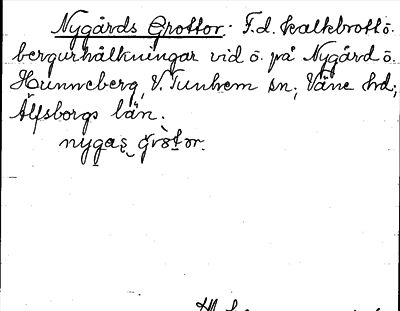 Nygårds Grottor. F.d. kalkbrott o.
bergurhålkningar vid o. på Nygård o.
Hunneberg, V. Tunhem sn, Väne hd,
Älfsborgs län.